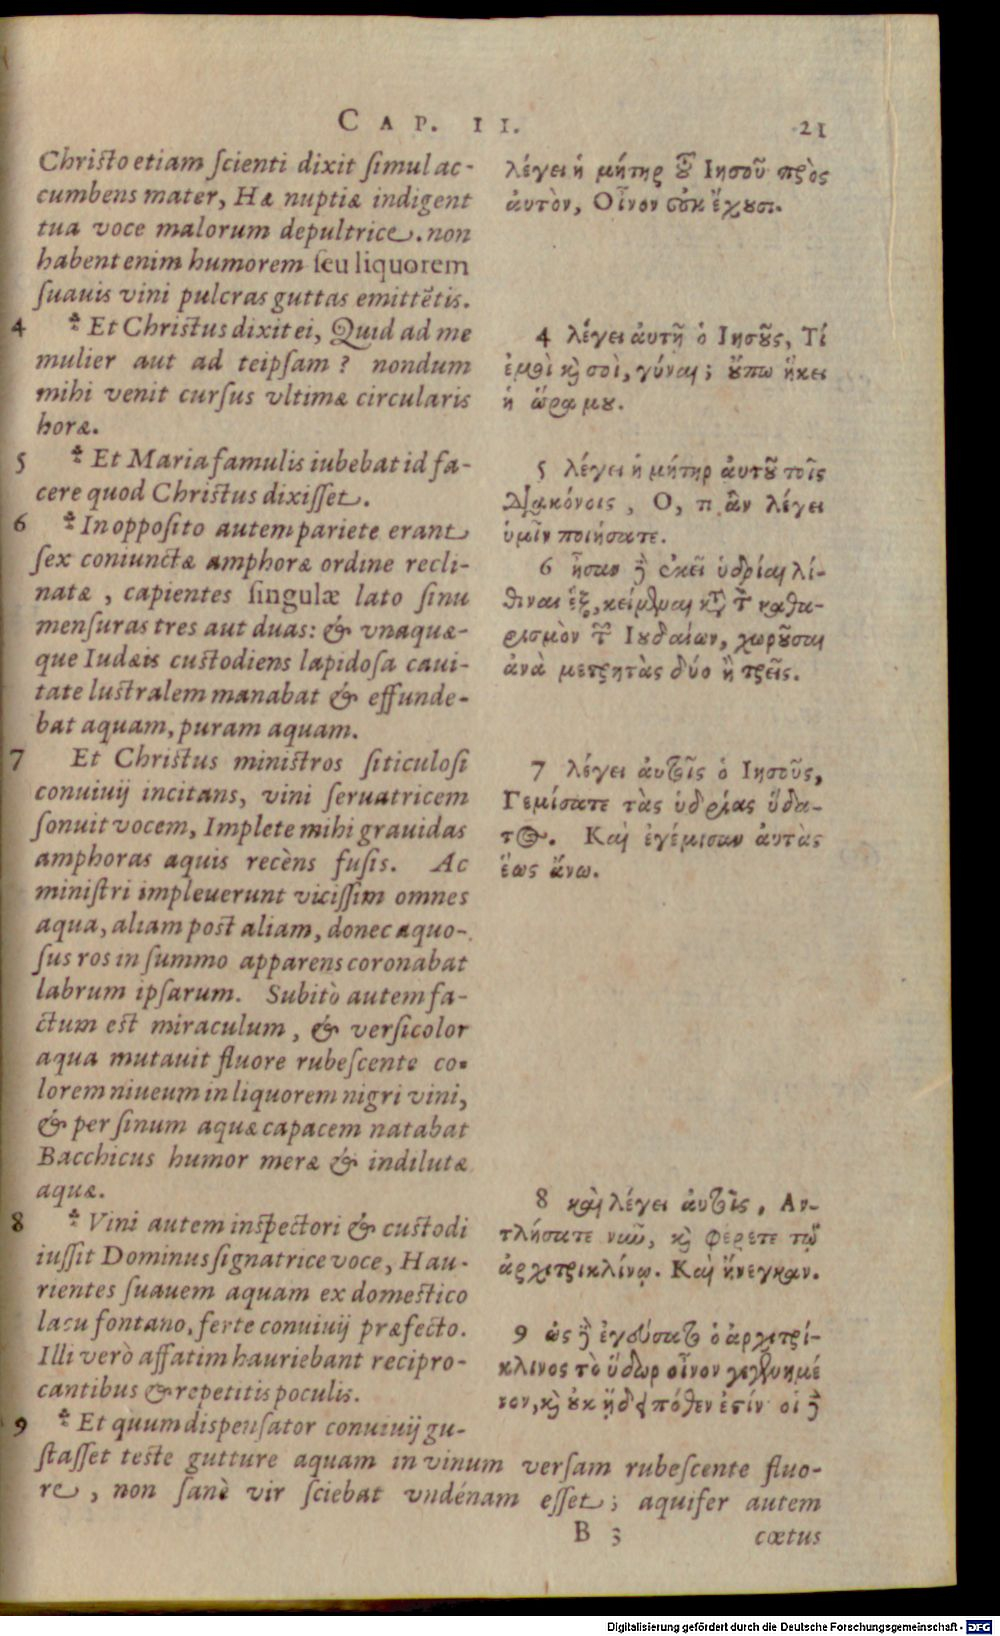 CAP. II. 21
Christo etiam scienti dixit simul ac-
cumbens mater, Hæ nuptiæ indigent
tua voce malorum depultrice. non
habent enim humorem seu liquorem
suauis vini pulcras guttas emittẽtis.
4 * Et Christus dixit ei, Quid ad me
mulier aut ad teipsam? nondum
mihi venit cursus vltimæ circularis
horæ.
5 * Et Maria famulis iubebat id fa-
cere quod Christus dixisset.
6 * In opposito autem pariete erant
sex coniunctæ amphoræ ordine recli-
natæ, capientes singulæ lato sinu
mensuras tres aut duas: & vnaquæ-
que Iudæis custodiens lapidosa caui-
tate lustralem manabat & effunde-
bat aquam, puram aquam.
7 Et Christus ministros siticulosi
conuiuij incitans, vini seruatricem
sonuit vocem, Implete mihi grauidas
amphoras aquis recèns fusis. Ac
ministri impleuerunt vicissim omnes
aqua, aliam post aliam, donec aquo-
sus ros in summo apparens coronabat
labrum ipsarum. Subitò autem fa-
ctum est miraculum, & versicolor
aqua mutauit fluore rubescente co-
lorem niueum in liquorem nigri vini,
& per sinum aquæ capacem natabat
Bacchicus humor meræ & indilutæ
aquæ.
8 * Vini autem inspectori & custodi
iussit Dominus signatrice voce, Hau-
rientes suauem aquam ex domestico
lacu fontano, ferte conuiuij præfecto.
Illi verò affatim hauriebant recipro-
cantibus & repetitis poculis.
9 * Et quum dispensator conuiuij gu-
stasset teste gutture aquam in vinum versam rubescente fluo-
re, non sanè vir sciebat vndénam esset; aquifer autem
λέγει ἡ μήτηρ τοῦ Ιησοῦ πρὸς
αὐτὸν, Οἶνον οὐκ ἔχουσι.
4 λέγει αὐτῇ ὁ Ιησοῦς, Τί
ἐμοὶ καὶ σοὶ, γύναι; οὔπω ἥκει
ἡ ὥρα μου.
5 λέγει ἡ μήτηρ αὐτοῦ τοῖς
διακόνοις, Ο, τι ἂν λέγει
ὑμῖν ποιήσατε.
6 ἦσαν δὲ ἐκεῖ ὑδρίαι λί-
θιναι ἓξ, κείμεναι κατὰ τὸν καθα-
ρισμὸν τῶν Ιουδαίων, χωροῦσαι
ἀνὰ μετρητὰς δύο ἢ τρεῖς.
7 λέγει αὐτοῖς ὁ Ιησοῦς,
Γεμίσατε τὰς ὑδρίας ὕδα-
τος. Καὶ ἐγέμισαν αὐτὰς
ἕως ἄνω.
8 καὶ λέγει αὐτοῖς, Αν-
τλήσατε νῦν, καὶ φέρετε τῷ
ἀρχιτρικλίνῳ. Καὶ ἤνεγκαν.
9 ὡς δὲ ἐγεύσατο ὁ ἀρχιτρί-
κλινος τὸ ὕδωρ οἶνον γεγενημέ
νον, καὶ οὐκ ᾔδει πόθεν ἐστίν· οἱ δὲ
B 3 cœtus
Digitalisierung gefördert durch die Deutsche Forschungsgemeinschaft - DFG